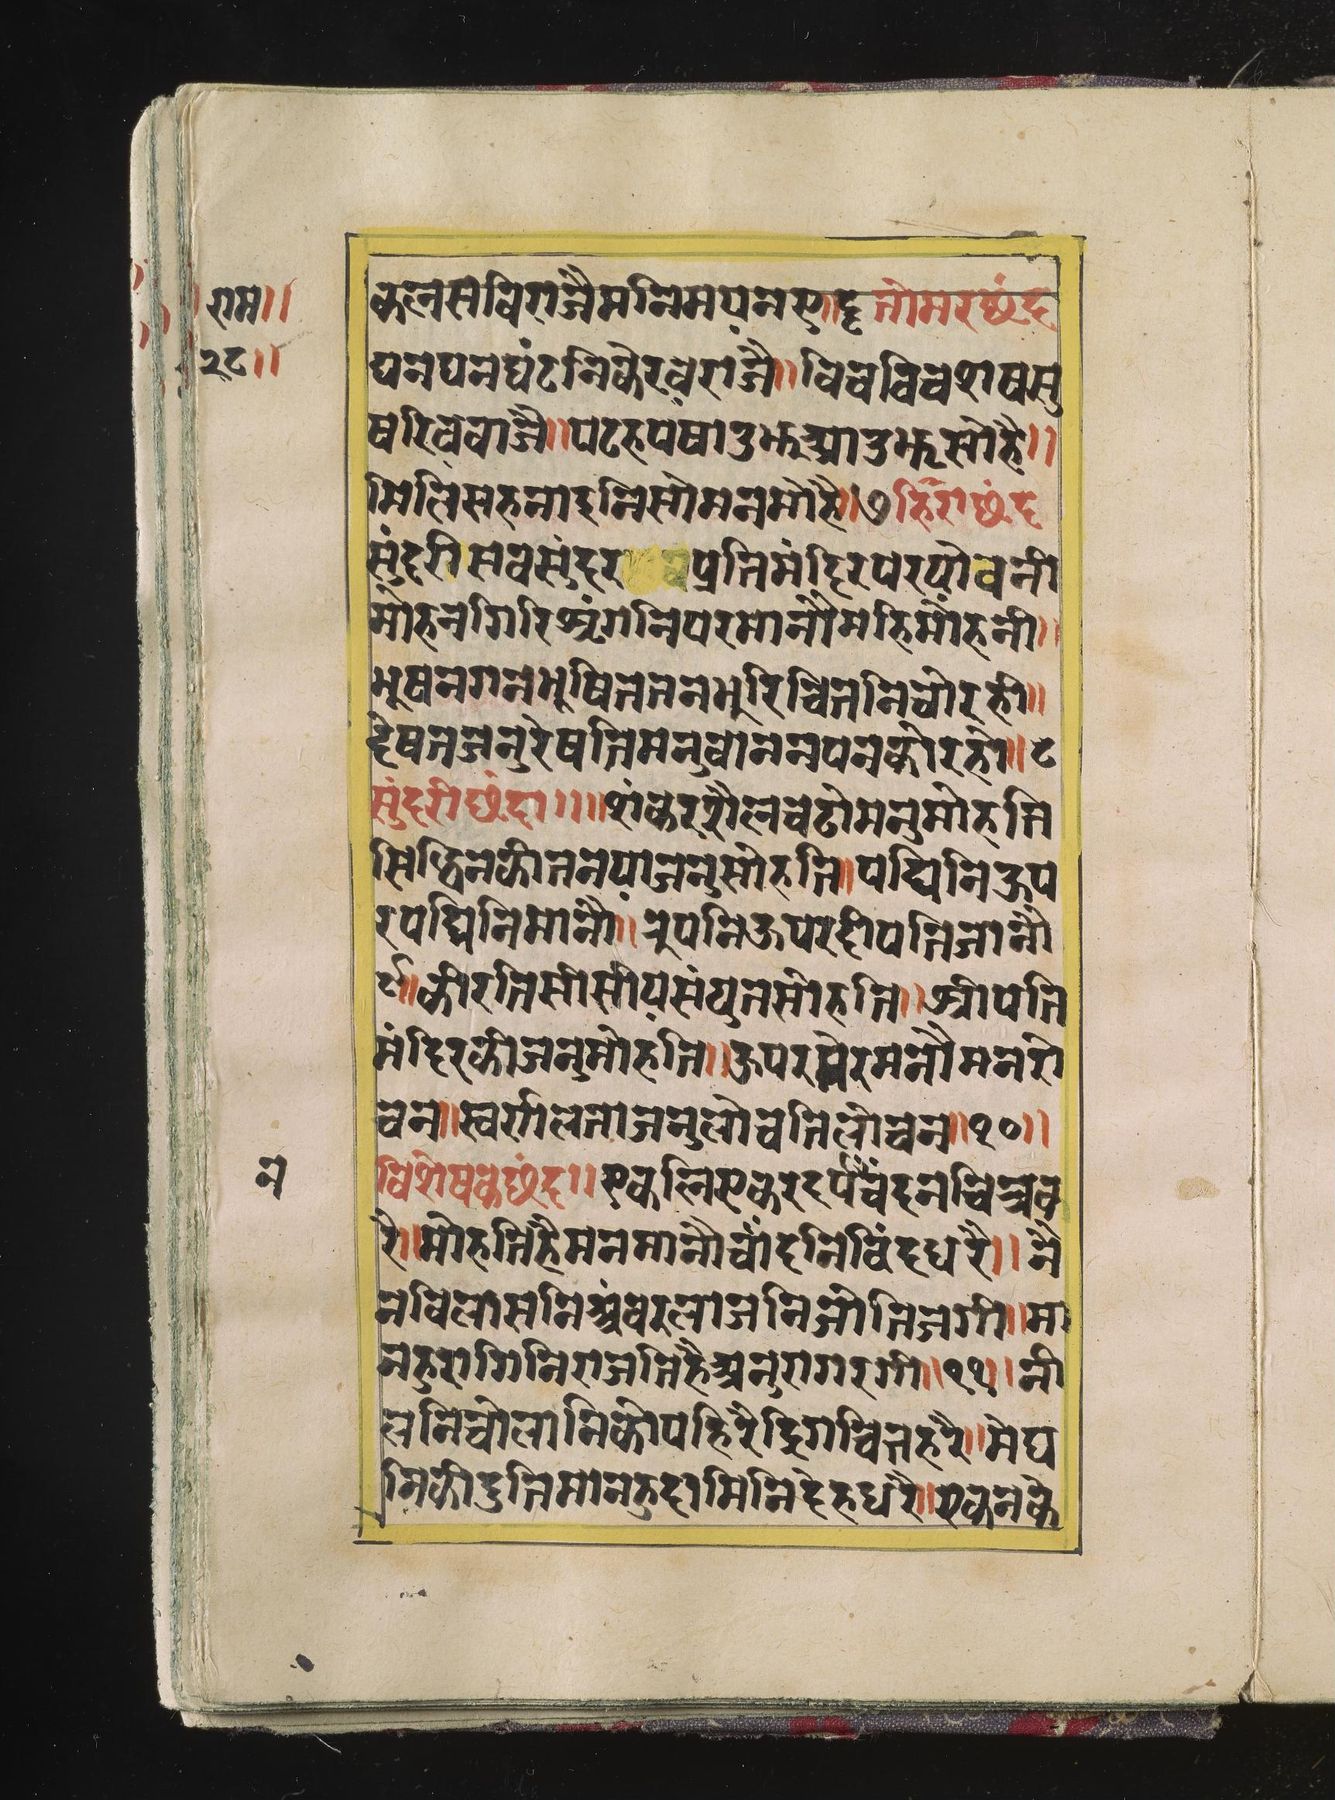 राम॥
२८॥
कलसविराजैमनिमयनए॥६ तोमरछंद
घनघनघंटनिकेरवराजै॥विचविचशंषसु
षरिववाजै॥पटहपंषाउझआउझसोहै॥
मिलिसहनाइनिसोमनमोहै॥७हीराछंद
सुंदरीसबसुंदर प्रतिमंदिरपरयोंबनी
मोहनगिरिश्रृंगनिपरमानौंमहिमोहनी॥
भूषनगनभूषिततनभूरिचितनिचोरही॥
देषतजनुरेषतिमनुबाननयनकोरही॥८
सुंदरीछंद॥॥॥शंकरशैलचढीमनुमोहति
सिद्धिनकीतनयाजनुसोहति॥पद्मिनिऊप
रपद्मिनिमानौं॥रूपनिऊपरदीपतिजानौं
९॥कीरतिसीसीयसंयुतसोहति॥श्रीपति
मंदिरकीजनुमोहति॥ऊपरमेरमनौमनरो
चन॥स्वर्णलताजनुलोचतिलोचन॥१०॥
न
विशेषकछंद॥एकलिएकरदर्पंचंदनचित्रक
रै॥मोहतिहैमनमानौचांदनिचंदधरै॥नै
नविलासनिअंबरलाजनिजोतिजगी॥मा
नहुरागिनिराजतिहैअनुरागरगी॥११॥नी
लनिचोलानिकोपहिरेंद्रिगचितहरै॥मेघ
निकीदुतिमानहुदामिनिदेहधरै॥एकनके